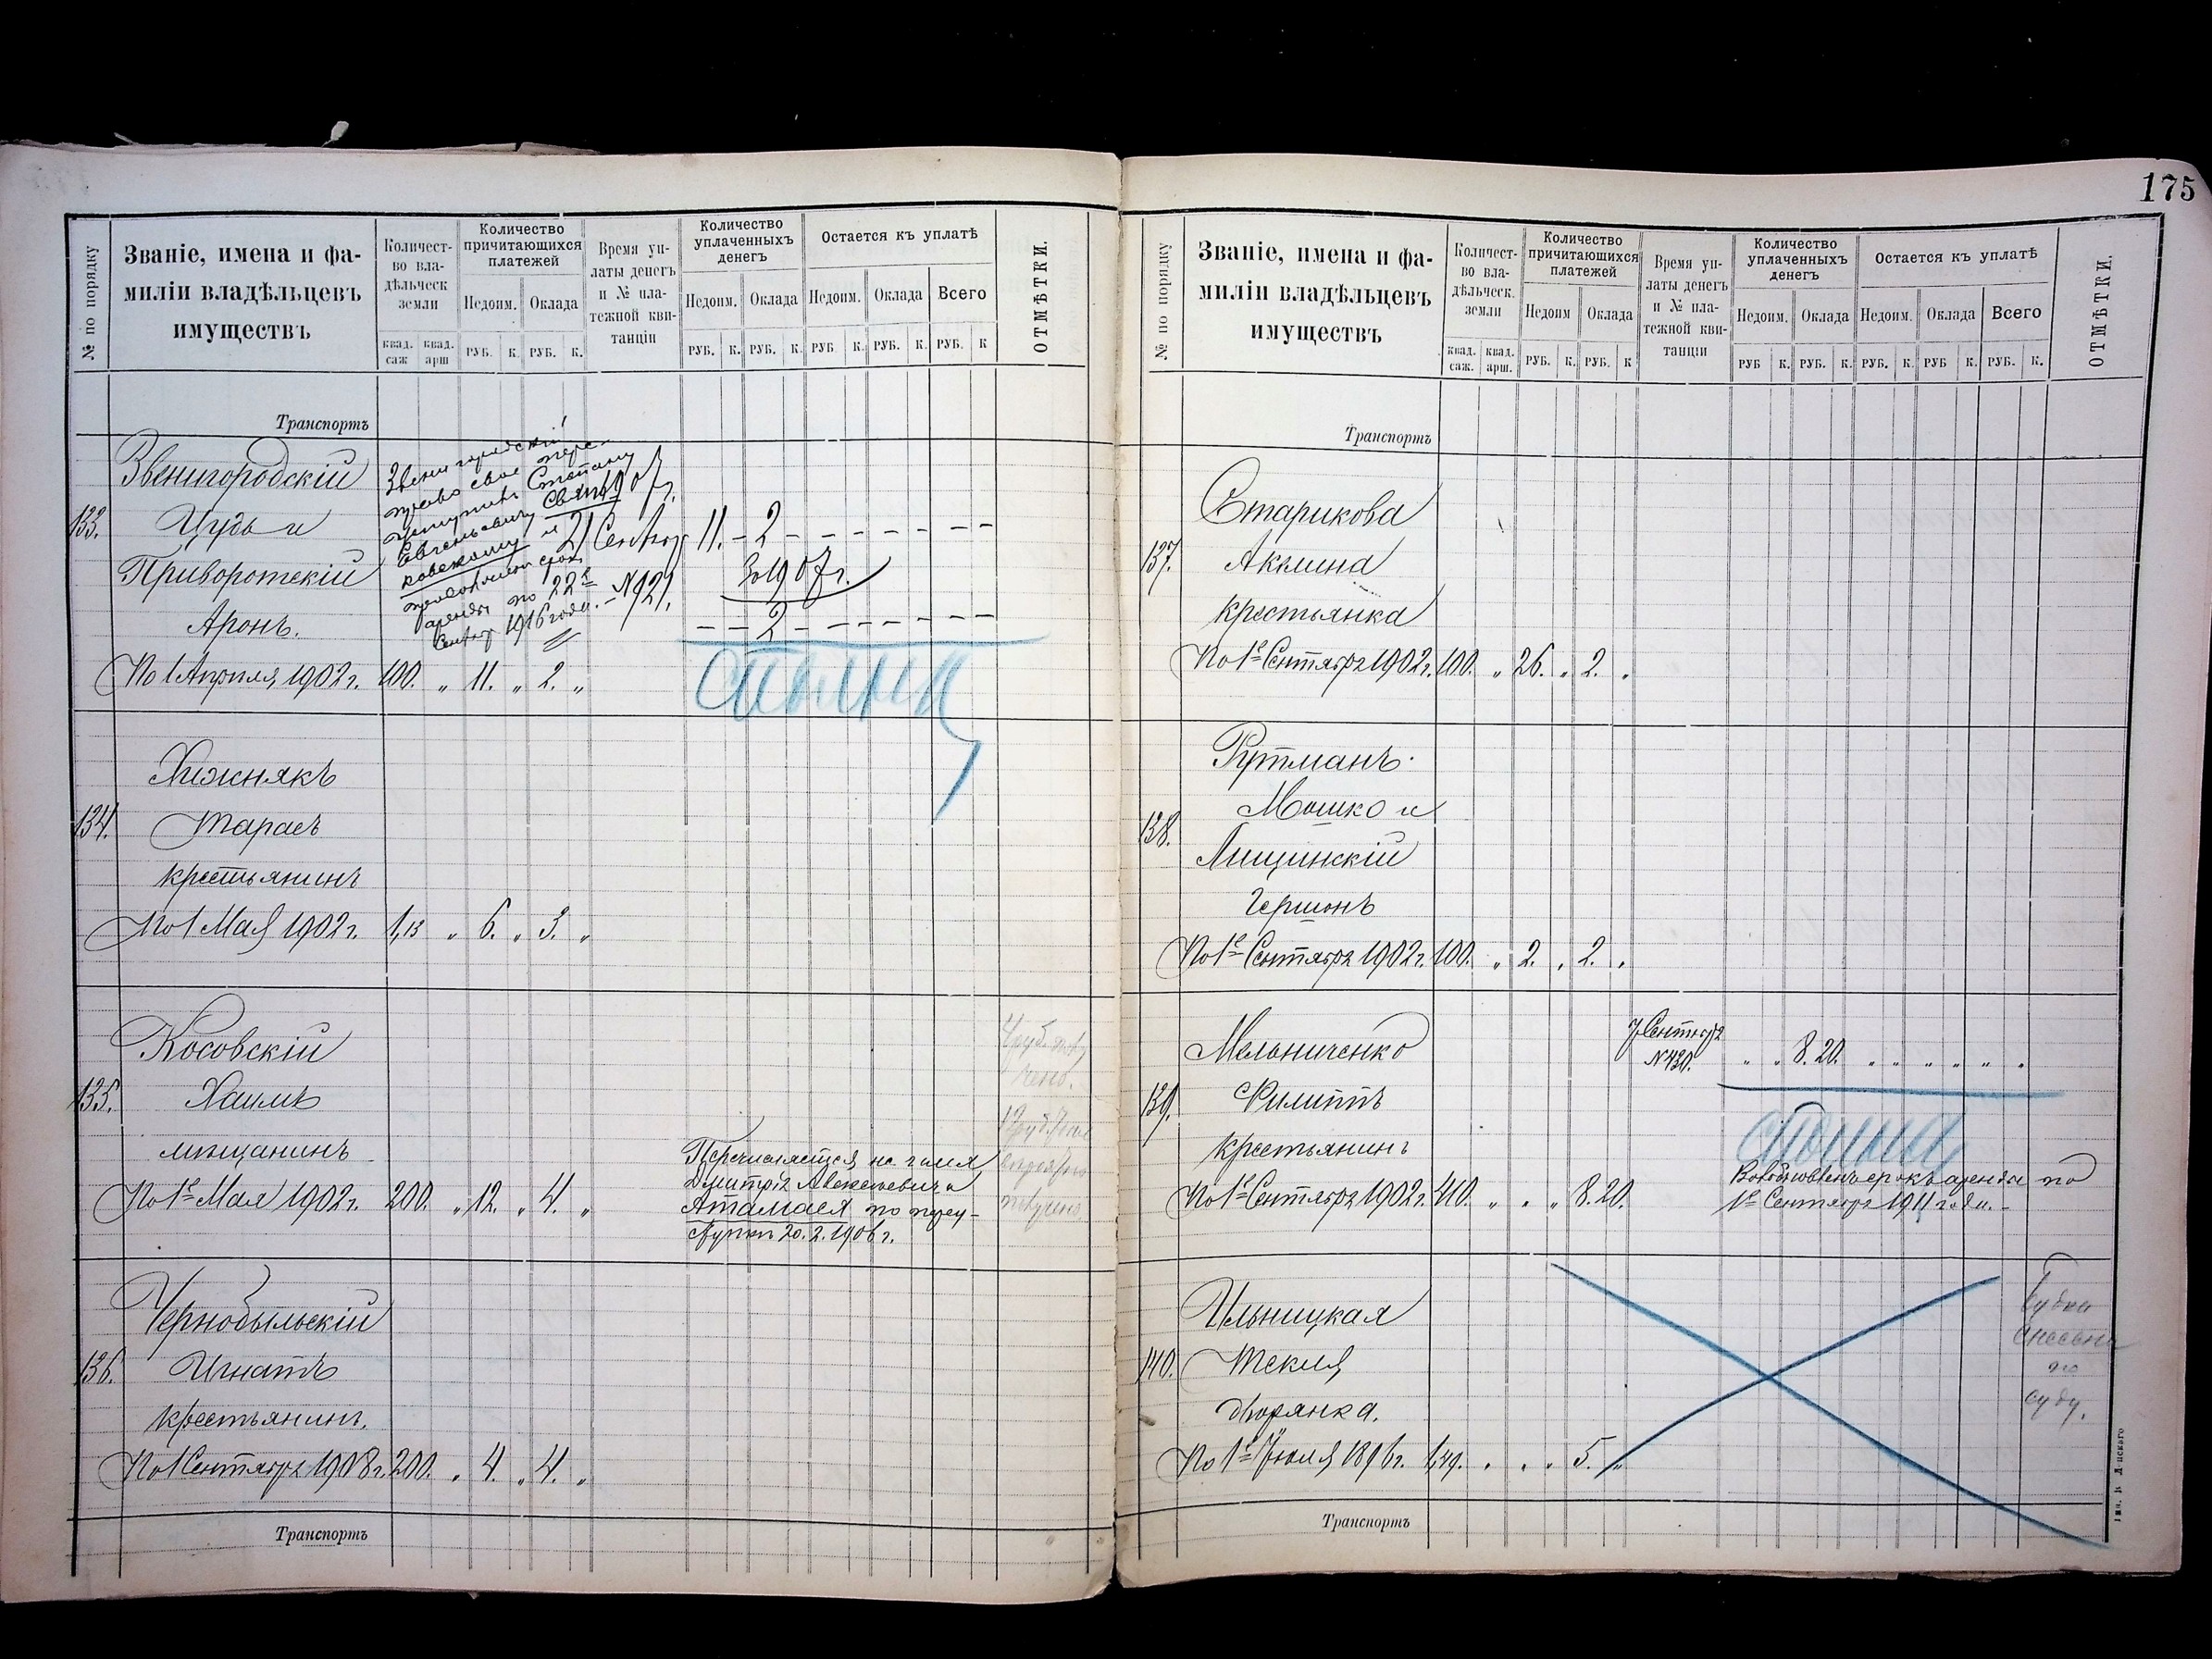 175
№ по порядку
Званіе, имена и фа-
миліи владѣльцевъ
имуществъ
Количест-
во вла-
дѣльческ
земли
квад. саж квад. арш
Количество
причитающихся
платежей
Недоим. Оклада
РУБ. К. РУБ. К.
Время уп-
латы денегъ
и № пла-
тежной кви-
танціи
Количество
уплаченныхъ
денегъ
Недоим. Оклада
РУБ. К. РУБ. К.
Остается къ уплатѣ
Недоим. Оклада Всего
РУБ К. РУБ. К. РУБ. К
ОТМѢТКИ.
Транспортъ
Звенигородскій
133. Цудь и
Приворотскій
Аронъ.
По 1 Апрѣля 1902 г. 100. „ 11. „ 2. „
Звенигородскій
право свое пере-
уступилъ Степану
Евгеньевичу
и
срок
аренды по 22е
Сентяб 1916 года.
1907 г.
21 Сентяб 11. - 2 - - - - - - -
№ 921.
За 1907 г.
- - 2 - - - - - - -
Хижнякъ
134. Тарасъ
крестьянинъ
По 1 Мая 1902 г. 1,13 „ 6. „ 3. „
Косовскій
135. Хаимъ
мѣщанинъ
По 1е Мая 1902 г. 200. „ 12. „ 4. „
Перечисляется на имя
Дмитрія Алексѣевича
Атамаса по переу-
ступкѣ 20.2.1906 г.
Чернобыльскій
136. Игнатъ
крестьянинъ.
По 1 Сентября 1908 г. 200. „ 4. „ 4. „
Транспортъ
№ по порядку
Званіе, имена и фа-
миліи владѣльцевъ
имуществъ
Количест-
во вла-
дѣльческ.
земли
квад. саж. квад. арш.
Количество
причитающихся
платежей
Недоим Оклада
РУБ. К. РУБ. К
Время уп-
латы денегъ
и № пла-
тежной кви-
танціи
Количество
уплаченныхъ
денегъ
Недоим. Оклада
РУБ К. РУБ. К.
Остается къ уплатѣ
Недоим. Оклада Всего
РУБ. К. РУБ К. РУБ. К.
ОТМѢТКИ.
Транспортъ
Старикова
137. Акилина
крестьянка
По 1е Сентября 1902 г. 100. „ 26. „ 2. „
Рутманъ
Мошко и
138. Лищинскій
Гершонъ
По 1е Сентября 1902 г. 100. „ 2. „ 2. „
Мельниченко
139. Филиппъ
крестьянинъ
По 1е Сентября 1902 г. 410. „ „ „ 8.20.
7 Сентября
№ 430. „ „ 8.20. „ „ „ „ „ „
Возобновленъ срокъ аренды по
1е Сентября 1911 года.-
Ильницкая
140. Текля
дворянка.
По 1е Іюля 1896 г. 1,49. „ „ „ 5. „
Будка
снесена
по
суду.
Транспортъ